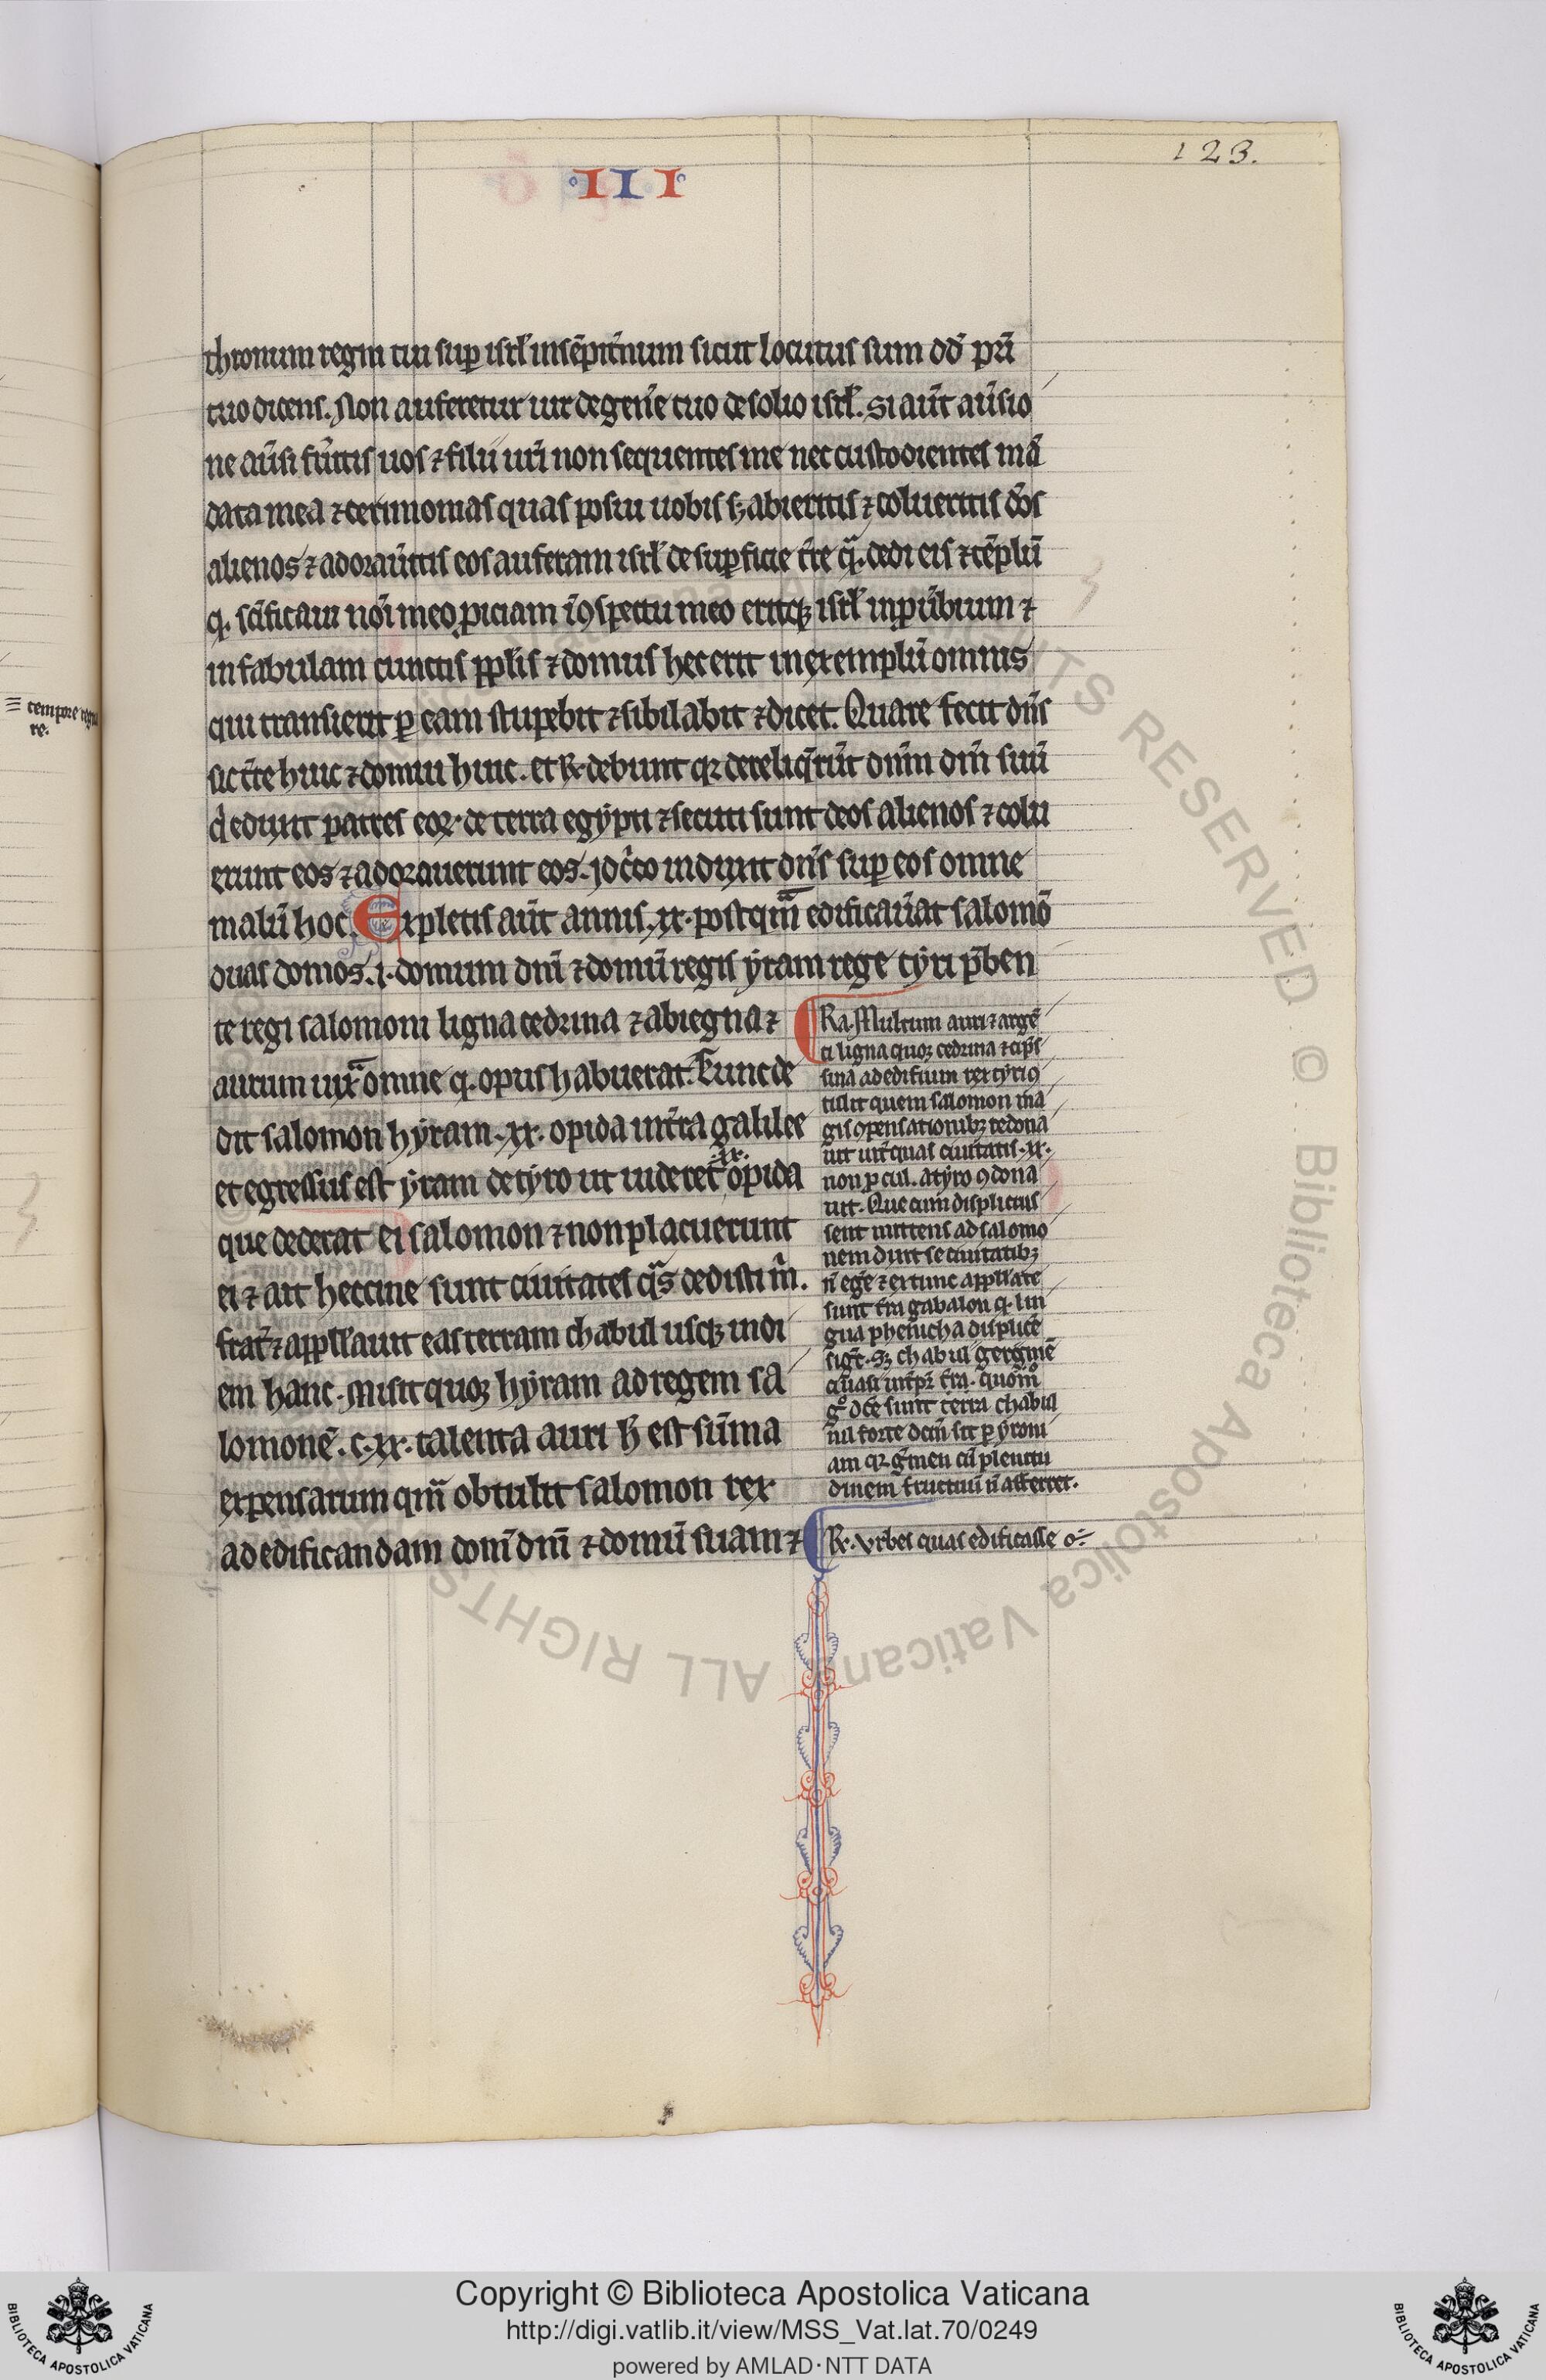 123.
III
thronum regni tui sup isrl in sēpitnum sicut locutus sum dd pri
tuo dicens. Non auferetur uir de genere tuo de solio isrl. Si aut auersio
ne auersi fueritis uos ⁊ filii uri non sequentes me nec custodientes mā
data mea ⁊ cerimonias quas posui uobis sꝫ abieritis ⁊ colueritis dos
alienos ⁊ adoraūitis eos auferam isrl de supficie tre q̄. dedi eis ⁊ tēplū
q. scificaui noī meo ꝓiciam i ꝯspectu meo eritqꝫ isrl in puerbium ⁊
in fabulam cunctis pplis ⁊ domus hec erit in exemplū omnis
qui transierit p eam stupebit ⁊ sibilabit ⁊ dicet. Quare fecit dns
sic tre huic ⁊ domui huic. et R. debunt qꝛ dereliq̄rūt dnm dm suū
q̄ eduxit patres eoꝝ. de terra egypti ⁊ secuti sunt deos alienos ⁊ colu
erunt eos ⁊ adorauerunt eos. idcͦco induxit dns sup eos omne
malū hoc. Expletis aūt annis .xx. postqm̄ edificauat salomō
duas domos .i. domum dni ⁊ domū regis yram rege tyri p̄ben
te regi salomoni ligna cedrina ⁊ abiegna ⁊
aurum iuxͣ omne q. opus habuerat. Tunc de
dit salomon hyram .xx. opida in tra galilee
et egressus est yram de tyro ut uideret .xx. opida
que dederat ei salomon ⁊ non placuerunt
ei ⁊ ait heccine sunt ciuitates qͣs dedisti m̄.
frat̄ ⁊ appllauit eas terram chabul usqꝫ in di
em hanc. Misit quoꝫ hyram ad regem sa
lomonē .c.xx. talenta auri h̄ est sūma
expensarum qm̄ obtulit salomon rex
ad edificandam dom dni ⁊ domū suam ⁊
Ra. Multum auri ⁊ argē
ti ligna quoꝫ cedrina ⁊ cip̄s
sina ad edifium rex tyriꝯ
tulit quem salomon ma
gis ꝯpensationibꝫ redona
uit uirͣ quas ciuitatis .xx.
non p cul. a tyro ꝯdona
uit. Que cum displicuis
sent mittens ad salomo
nem dixit se ciuitatibꝫ
n̄ egē ⁊ ex tunc appllate
sunt tra gabalon q. lin
gua phenicha displicē
sigt. Sꝫ chabul
qͣsi
gͦ dce sunt terra chabul
uł forte dcm sit p yroni
am qꝛ gͣmen cū plenitu
dinem fructuū n̄ afferret.
Ra. Vrbes quas edificasse
≡ tempore regna
re.
Copyright © Biblioteca Apostolica Vaticana
http://digi.vatlib.it/view/MSS_Vat.lat.70/0249
powered by AMLAD·NTT DATA
BIBLIOTECA APOSTOLICA VATICANA
BIBLIOTECA APOSTOLICA VATICANA
© Biblioteca Apostolica Vaticana ALL RIGHTS RESERVED